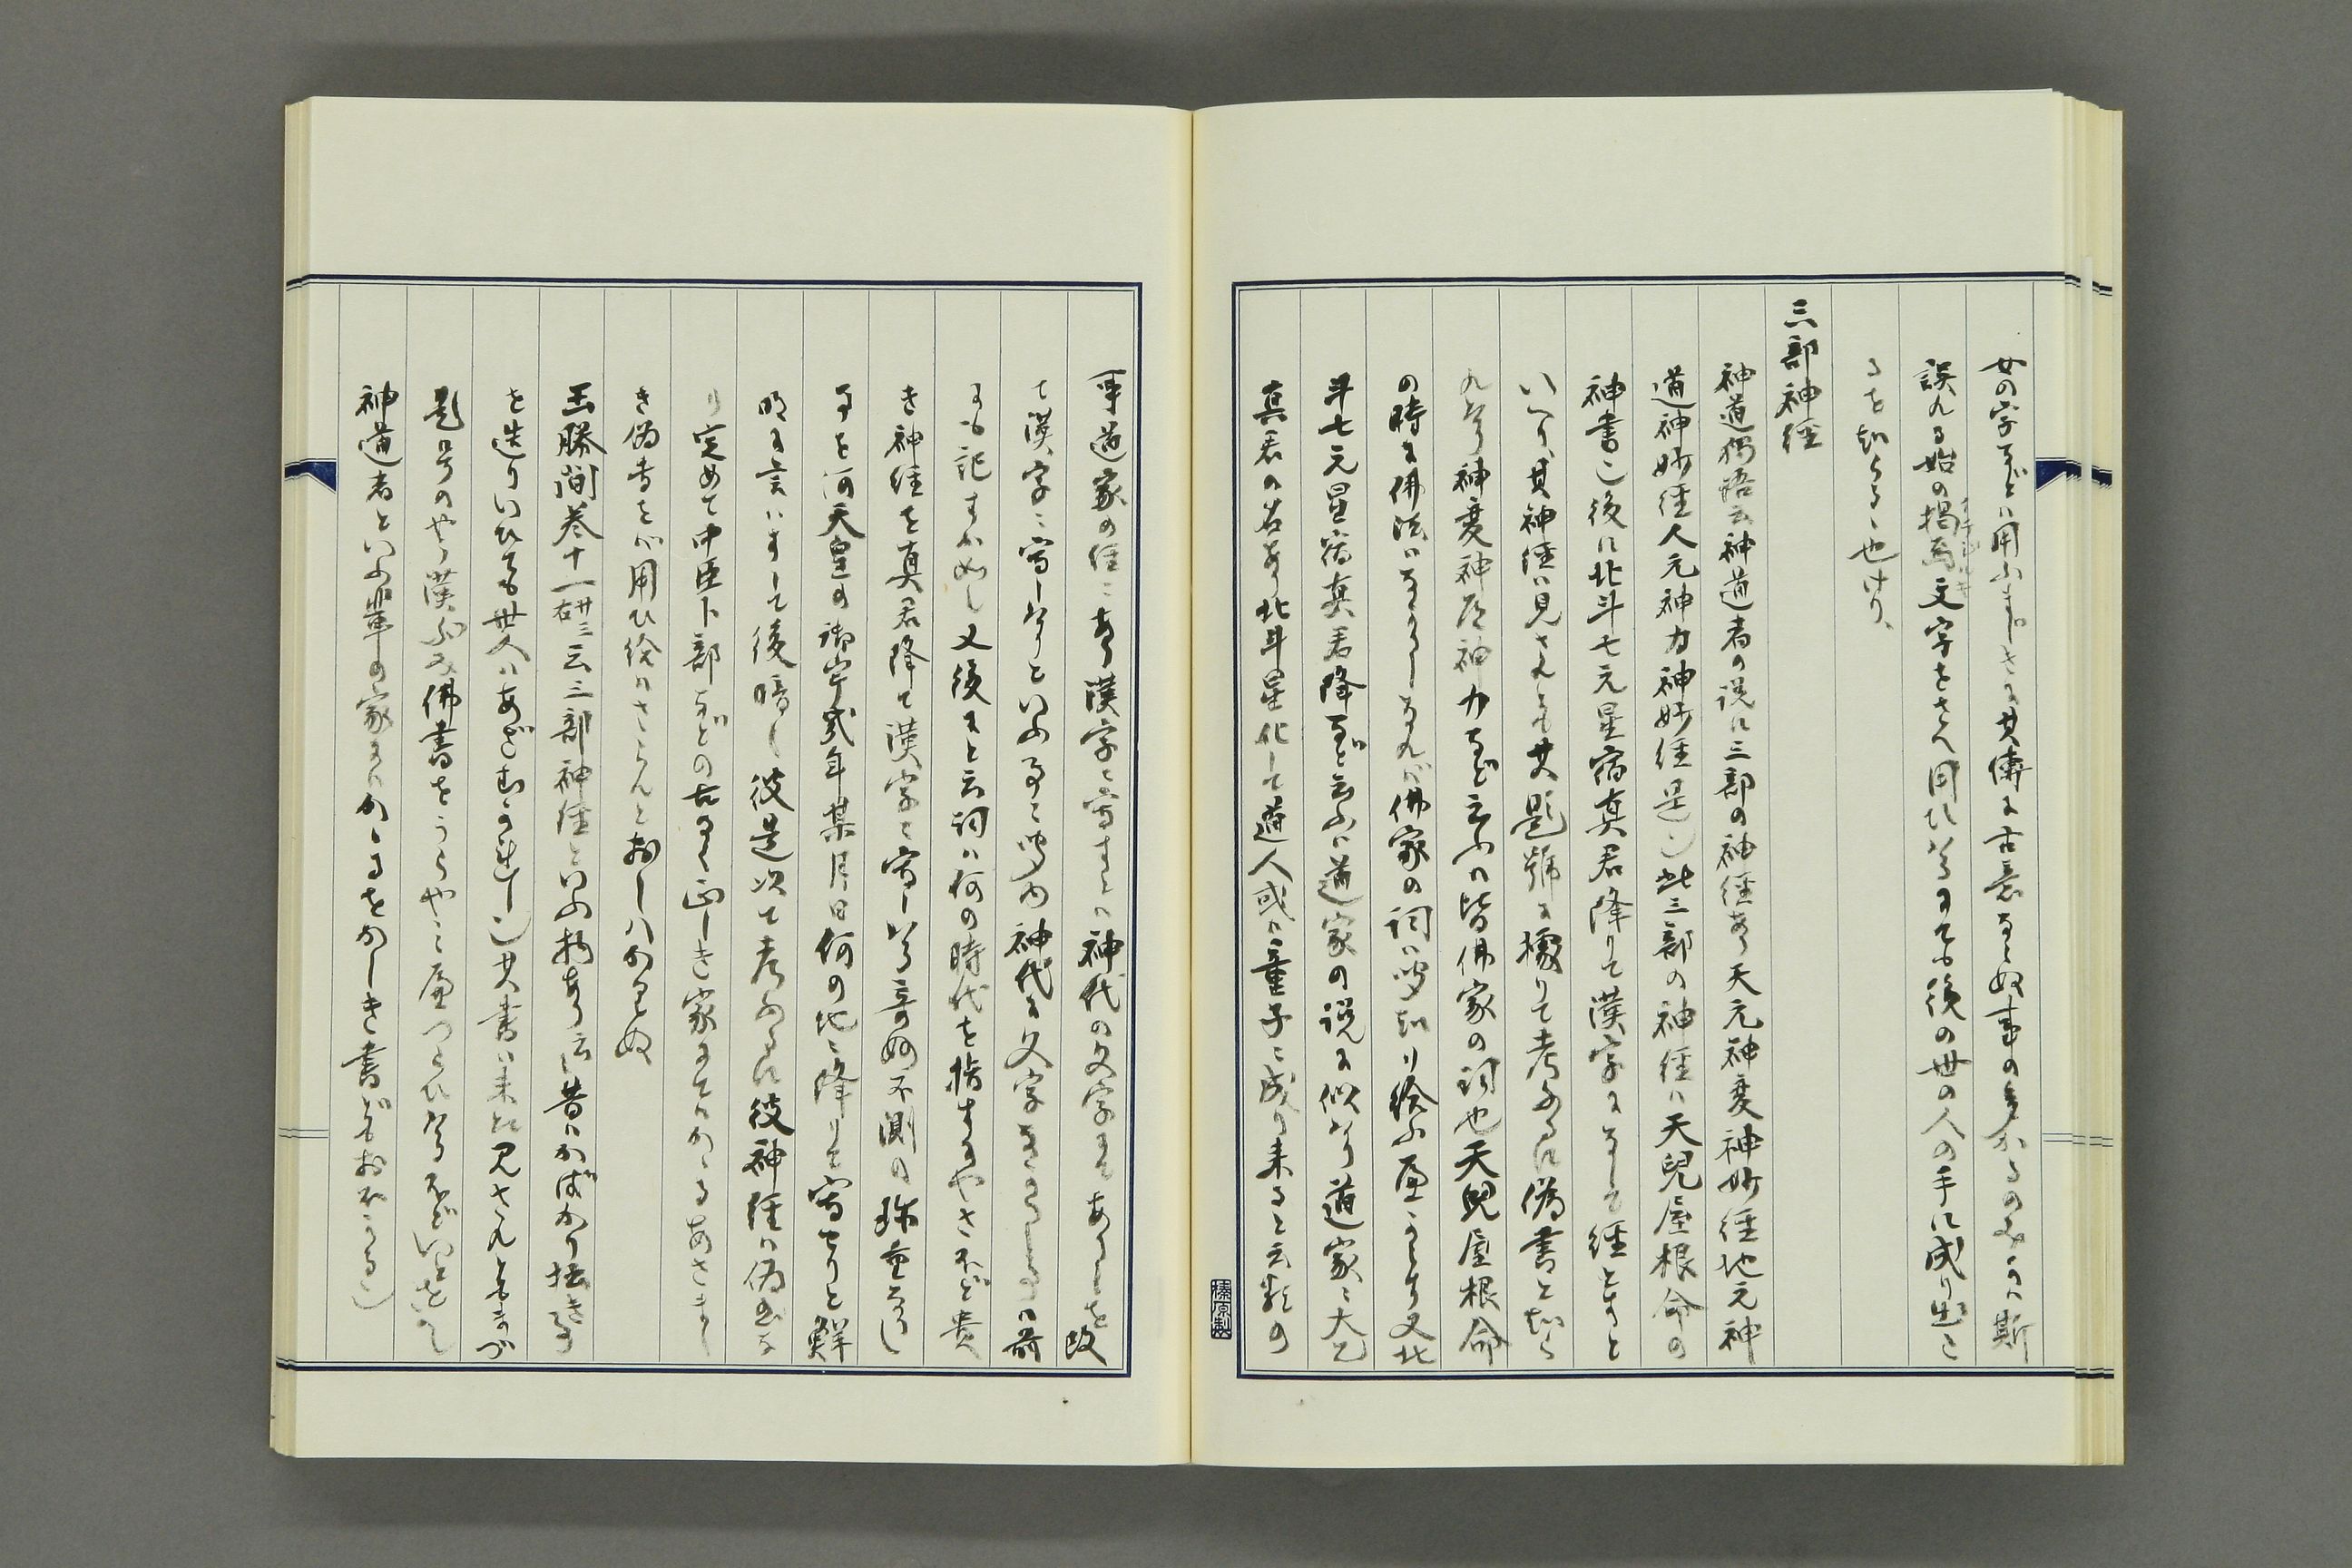 女の字などは用ふまじきに其傳に古意ならぬ事の多かるのみかは斯
誤れる始の掲焉文字をさへ用ひけるにても後の世の人の手に成り出こ
るを知らるゝ也けり、
三部神経
神道獨語云神道者の説に三部の神経あり天元神変神妙経地元神
道神妙経人元神力神妙経是也此三部の神経は天兒屋根命の
神書也後に北斗七元星宿真君降りて漢字になして経とすと
いへり、其神経は見されとも其題號に據りて考ふるに偽書と知ら
れけり神変神道神力など云ふは皆佛家の詞也天兒屋根命
の時に佛法はなかりしなれば佛家の詞は哿知り給ふ
斗七元星宿真君降など云ふは道家の説に似たり道家に大乙
真君の名あり北斗星化して道人或は童子に成り来ると云類の
事道家の経にあり漢字に寫すとは神代の文字にてありしを改
て漢字に寫しけりといふ事に
神代に文字なかりしは前
にも記すが如し又後にと云詞は何の時代を指すにやさほど貴
き神経を真君降て漢字に寫しける奇妙不測の珍重なり
事を何天皇の御宇弐年某月日何の地に降りて寫せりと鮮
明に言はすして後暗し彼是次て考ふるに彼神経は偽書な
り定めて中臣卜部などの古く正しき家にてはかゝるあさまし
き偽書をば用ひ給はさらんとおしはかられぬ
玉勝間巻十一廿三右云三部神経といふ物あり云昔はかばかり拙き事
を造りいひても世人はあざむかれし也其書は未だ見されともまづ
題号のやう漢ぶみ佛書をうらやみ
神道者といふ輩の家にはかゝるをかしき書どもおほかる也
榛原製